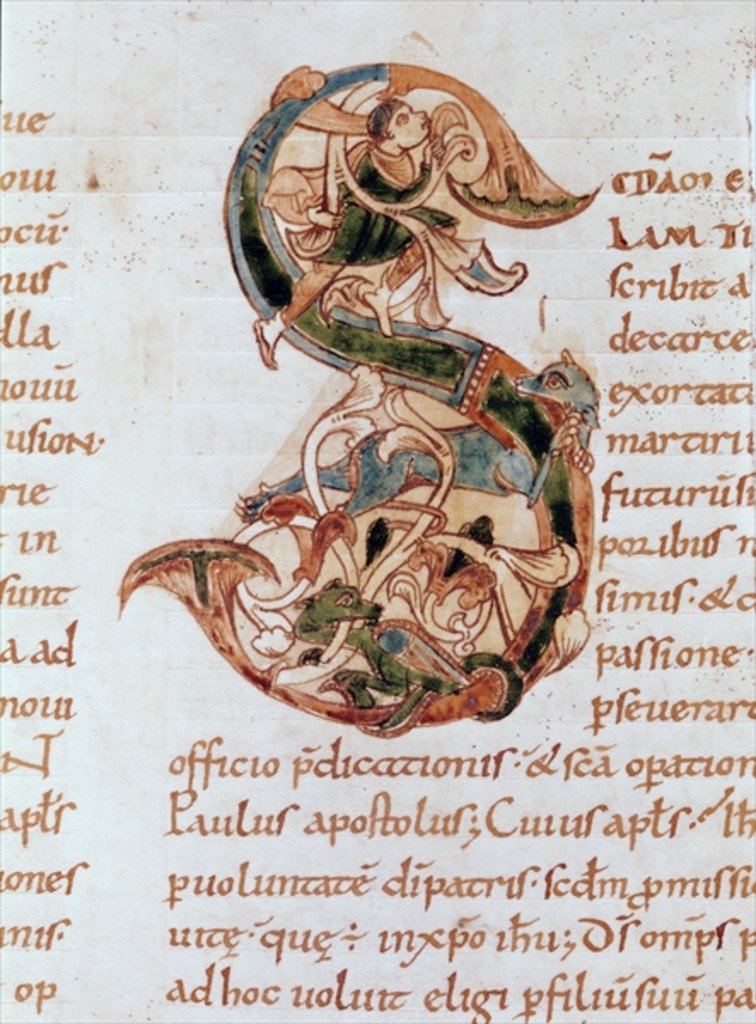 ue
oui
ocū·
nus
lla
nouū
usion·
rie
in
sunt
a ad
noui
N
apƚs
iones
nis·
op
S
lam ti
scribit a
decarce
exortati
martirii
futurūs
poribus n
simis· &
passione·
ꝑseuerar
officio p̄dicationis· & scā oꝑation
Paulus apostolus; Cuius apƚs·
ꝑ uoluntatē dī patris· scdm ꝓmissi
uitę· quę ÷ in xp̄o ihū; Ds̄ omp̄s p
ad hoc uoluit eligi ꝑ filiū suū pa